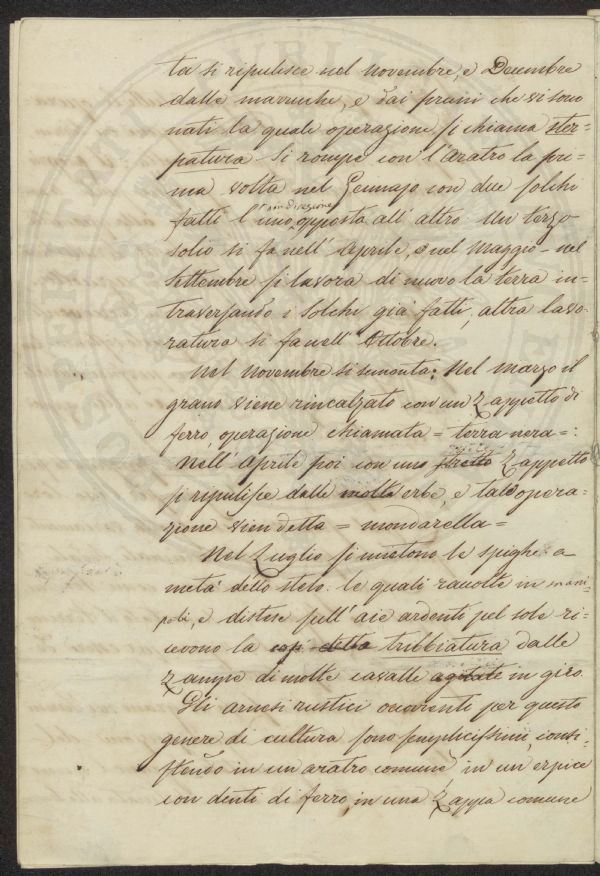 ta si ripulisce nel novembre, e Decembre
dalle marruche, e dai pruni che vi sono
nati la quale operazione si chiama ster-
patura. Si rompe con l'aratro la pri-
ma volta nel Gennajo con due solchi
fatti l'uno in direzione opposta all'altro. Un terzo
solco si fa nell'Aprile, o nel Maggio - nel
Settembre si lavora di nuovo la terra in-
traversando i solchi già fatti, altra lavo-
ratura si fa nell'Ottobre.
Nel Novembre si sementa: Nel marzo il
grano viene rincalzato con un Zappetto di
ferro, operazione chiamata = terra nera =:
Nell'Aprile poi con uno stretto Zappetto
si ripulisce dalle molte erbe, e tale opera-
zione vien detta = mondarella =
Nel Luglio si mietono le spighe a
metà dello stelo: le quali raccolte in mani-
poli, e distese sull'aie ardenti pel sole ri-
cevono la così detta tribbiatura dalle
Zampe di molte cavalle agitate in giro.
Gli arnesi rustici occorenti per questo
genere di cultura sono semplicissimi, consi-
stendo in un aratro comune, in un erpice
con denti di ferro, in una Zappa comune